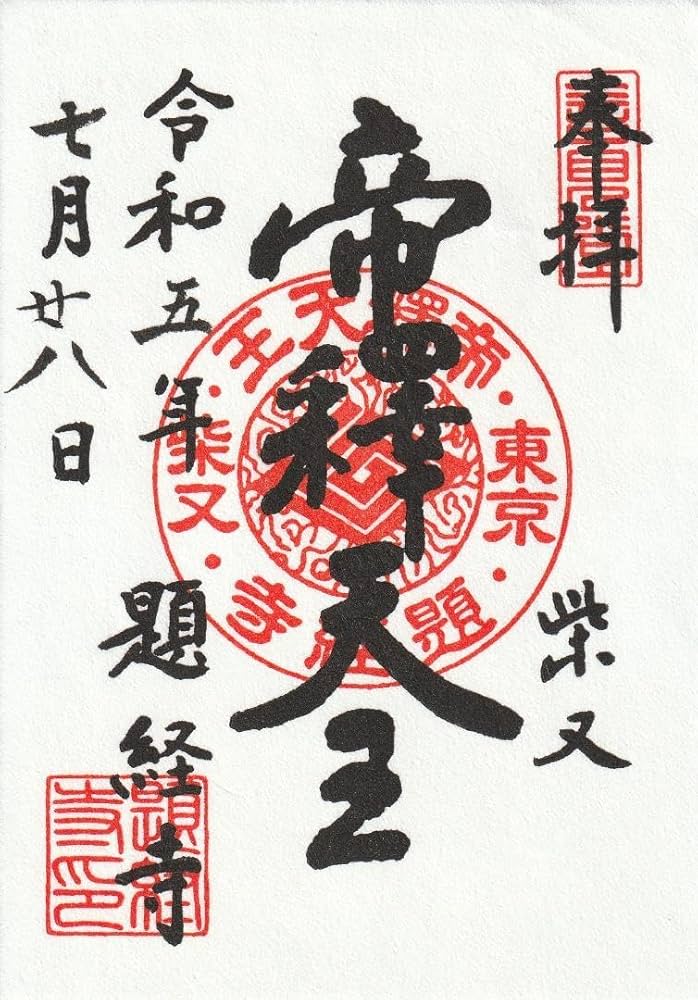 奉拝
柴又
帝釋天王
令和五年
七月廿八日
題経寺
帝釋天王
東京
柴又
題経寺
題経寺印